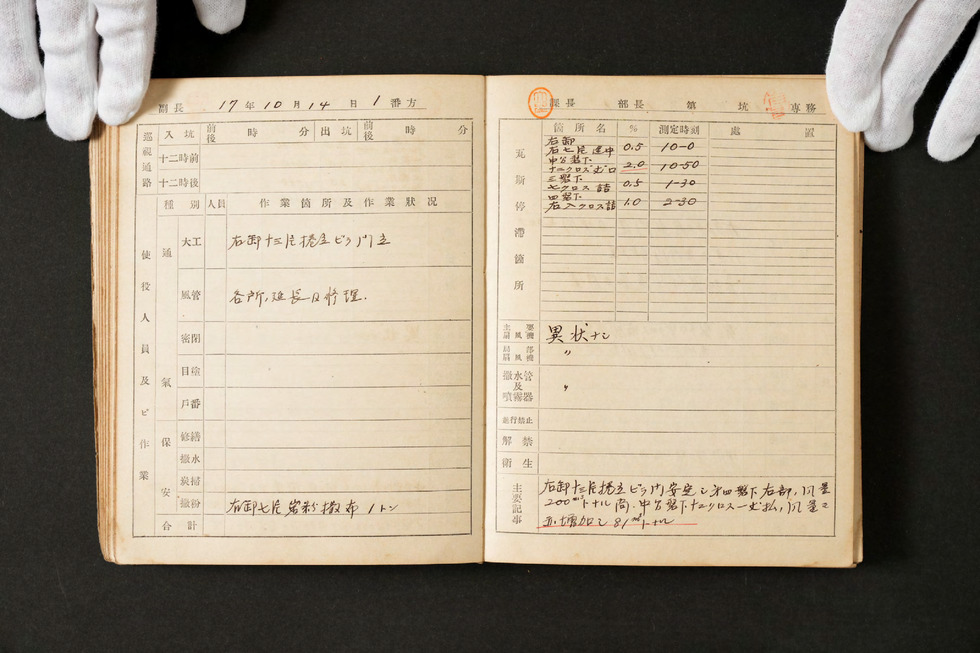 副長 17年10月14日1番方
巡視通路
入坑 前後 時 分 出坑 前後 時 分
十二時前
十二時後
使役人員及ビ作業
種別 人員 作業箇所及作業狀況
通氣
大工 右卸十三片捲立ビラ門立
風管 各所ノ延長及修理.
密閉
目塗
戸番
保安
修繕
撒水
炭掃
撒粉 右卸七片岩粉撒布 1トン
合計
課長 部長 第 坑 専務
瓦斯停滯箇所
箇所名 % 測定時刻 處置
右卸
右七片連中 0.5 10-0
中公盤下
十二クロス 口 2.0 10-50
三盤下
七クロス詰 0.5 1-30
四盤下
右入クロス詰 1.0 2-30
主要扇風機 異狀ナシ
局部扇風機 〃
撒水管及噴霧器 〃
進行禁止
解禁
衛生
主要記事
右卸十三片捲立ビラ門安定シ 四盤下右部ノ風量
200m³トナル尚.中公盤下十二クロス 払ノ風量モ
亦増加シ81m³トナル